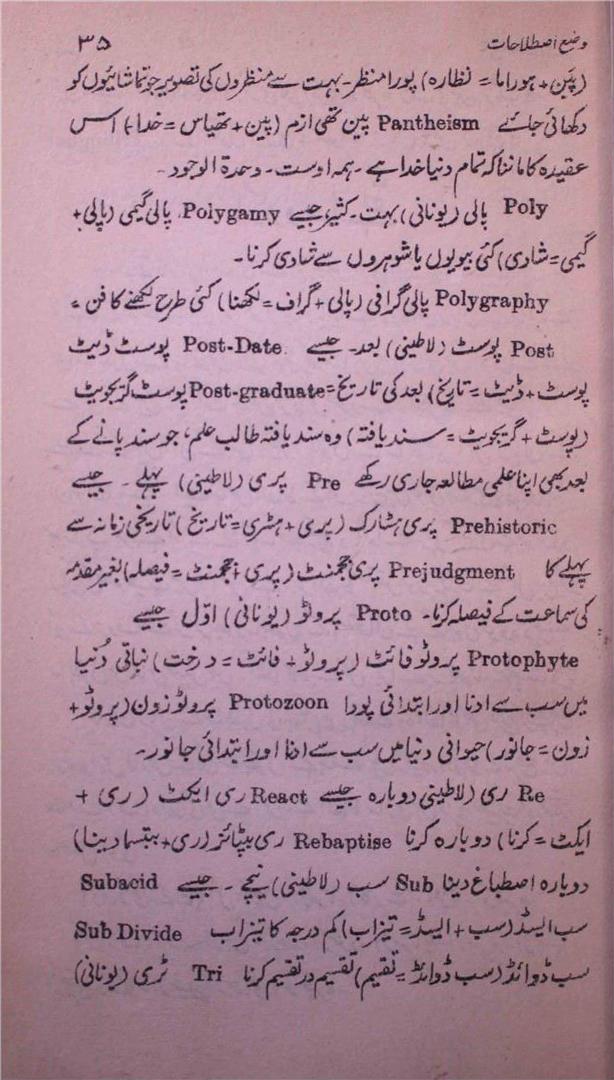 وضع اصطلاحات ۳۵
(پَین + ہوراما = نظارہ) پورا منظر۔ بہت سے منظروں کی تصویر جو تماشائیوں کو
دکھائی جائے Pantheism پین تھی ازم (پین + تھیاس = خدا) اس
عقیدہ کا ماننا کہ تمام دنیا خدا ہے ۔ ہمہ اوست ۔ وحدۃ الوجود ۔
Poly پالی (یونانی) بہت ۔ کثیر، جیسے Polygamy پالی گیمی (پالی +
گیمی = شادی) کئی بیویوں یا شوہروں سے شادی کرنا ۔
Polygraphy پالی گرافی (پالی + گراف = لکھنا) کئی طرح لکھنے کا فن ۔
Post پوسٹ (لاطینی) بعد ۔ جیسے Post-Date پوسٹ ڈیٹ
پوسٹ + ڈیٹ = تاریخ) بعد کی تاریخ = Post-graduate پوسٹ گریجویٹ
(پوسٹ + گریجویٹ = سند یافتہ) وہ سند یافتہ طالب علم، جو سند پانے کے
بعد بھی اپنا علمی مطالعہ جاری رکھے Pre پری (لاطینی) پہلے ۔ جیسے
Prehistoric پری ہسٹارک (پری + ہسٹری = تاریخ) تاریخی زمانہ سے
پہلے کا Prejudgment پری ججمنٹ (پری + ججمنٹ = فیصلہ) بغیر مقدمہ
کی سماعت کے فیصلہ کرنا ۔ Proto پروٹو (یونانی) اوّل جیسے
Protophyte پروٹو فائٹ (پروٹو + فائٹ = درخت) نباتی دُنیا
میں سب سے ادنا اور ابتدائی پودا Protozoon پروٹو زون (پروٹو +
زون = جانور) حیوانی دنیا میں سب سے ادنا اور ابتدائی جانور ۔
Re ری (لاطینی) دوبارہ جیسے React ری ایکٹ (ری +
ایکٹ = کرنا) دوبارہ کرنا Rebaptise ری بیپٹائز (ری + بپتسما دینا)
دوبارہ اصطباغ دینا Sub سب (لاطینی) نیچے ۔ جیسے Subacid
سب ایسڈ (سب + ایسڈ = تیزاب) کم درجہ کا تیزاب Sub Divide
سب ڈوائڈ (سب ڈوائڈ = تقیم) تقسیم در تقسیم کرنا Tri ٹری (یونانی)